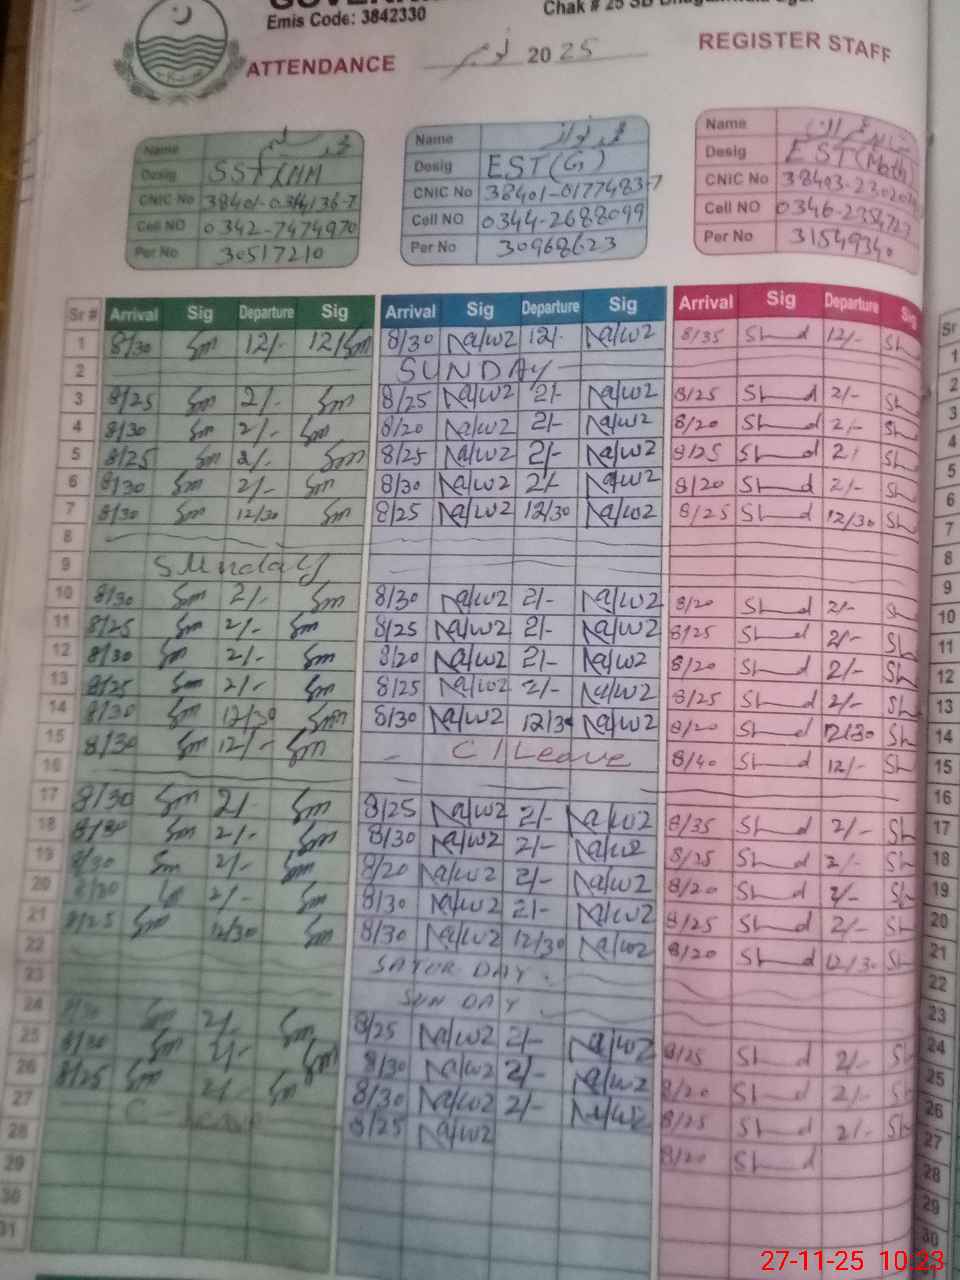 Emis Code: 3842330
Chak # 25 SB
ATTENDANCE نومبر 2025 REGISTER STAFF
Name محمد سلیم Name محمد نواز Name
Desig SST(HM Desig EST(G) Desig EST(Math)
CNIC No CNIC No 38401-0177483-7 CNIC No
Cell NO 0342-7474970 Cell NO 0344-2688099 Cell NO
Per No 30517210 Per No 30968623 Per No 31549340
Sr # Arrival Sig Departure Sig Arrival Sig Departure Sig Arrival Sig Departure Sig
1 8/30 Sm 12/- 12/Sm 8/30 Na/wz 12/- Na/wz 8/35 Sh d 12/- Sh
2 SUNDAY
3 8/25 Sm 2/- Sm 8/25 Na/wz 2/- Na/wz 8/25 Sh d 2/- Sh
4 8/30 Sm 2/- Sm 8/20 Na/wz 2/- Na/wz 8/20 Sh d 2/- Sh
5 8/25 Sm 2/- Sm 8/25 Na/wz 2/- Na/wz 8/25 Sh d 2/- Sh
6 8/30 Sm 2/- Sm 8/30 Na/wz 2/- Na/wz 8/20 Sh d 2/- Sh
7 8/30 Sm 12/30 Sm 8/25 Na/wz 12/30 Na/wz 8/25 Sh d 12/30 Sh
8
9 Sunday
10 8/30 Sm 2/- Sm 8/30 Na/wz 2/- Na/wz 8/20 Sh d 2/- Sh
11 8/25 Sm 2/- Sm 8/25 Na/wz 2/- Na/wz 8/25 Sh d 2/- Sh
12 8/30 Sm 2/- Sm 8/20 Na/wz 2/- Na/wz 8/20 Sh d 2/- Sh
13 8/25 Sm 2/- Sm 8/25 Na/wz 2/- Na/wz 8/25 Sh d 2/- Sh
14 8/30 Sm 12/30 Sm 8/30 Na/wz 12/30 Na/wz 8/20 Sh d 12/30 Sh
15 8/30 Sm 12/- Sm - C/Leave 8/40 Sh d 12/- Sh
16
17 8/30 Sm 2/- Sm 8/25 Na/wz 2/- Na/wz 8/35 Sh d 2/- Sh
18 8/30 Sm 2/- Sm 8/30 Na/wz 2/- Na/wz 8/25 Sh d 2/- Sh
19 8/30 Sm 2/- Sm 8/20 Na/wz 2/- Na/wz 8/20 Sh d 2/- Sh
20 8/30 2/- Sm 8/30 Na/wz 2/- Na/wz 8/25 Sh d 2/- Sh
21 8/25 Sm 12/30 Sm 8/30 Na/wz 12/30 Na/wz 8/20 Sh d 12/30 Sh
22 SATUR DAY
23 SUN DAY
24 8/30 Sm 2/- Sm 8/25 Na/wz 2/- Na/wz 8/25 Sh d 2/- Sh
25 8/30 Sm 2/- Sm 8/30 Na/wz 2/- Na/wz 8/20 Sh d 2/- Sh
26 8/25 Sm 2/- Sm 8/30 Na/wz 2/- Na/wz 8/25 Sh d 2/- Sh
27 C-Leave 8/25 Na/wz 8/20 Sh d
28
29
30
31
27-11-25 10:23